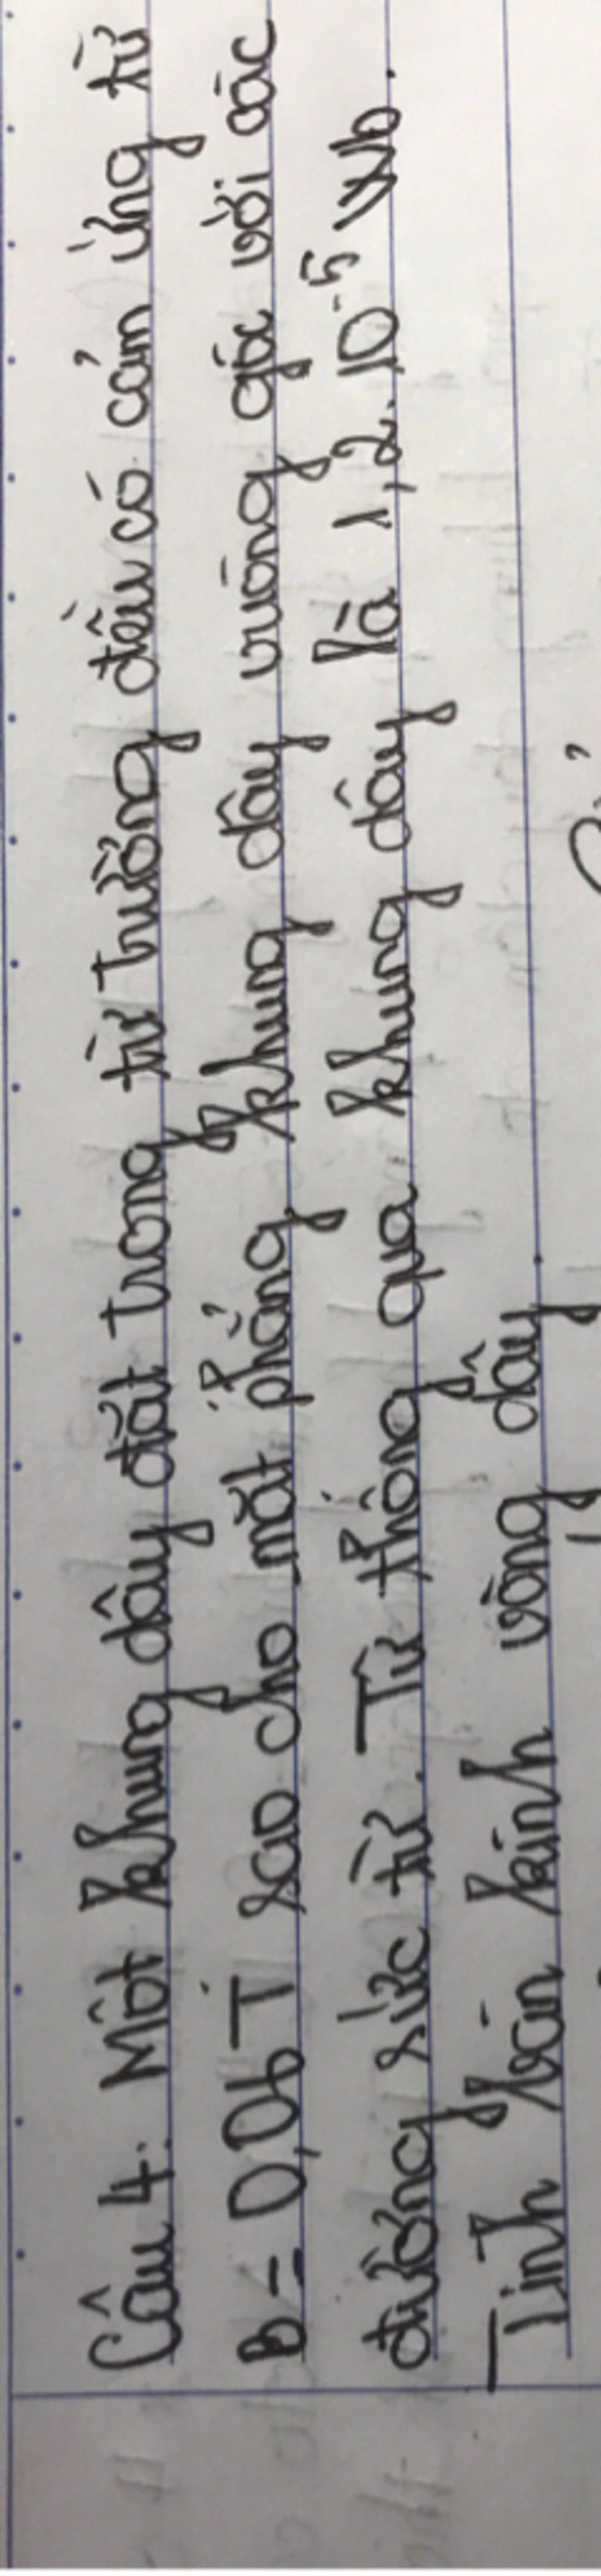 Câu 4. Một khung dây đặt trong từ trường đều có cảm ứng từ
B = 0,06 T sao cho mặt phẳng khung dây vuông góc với các
đường sức từ. Từ thông qua khung dây là 1,2.10⁻⁵ Wb.
Tính bán kính vòng dây.